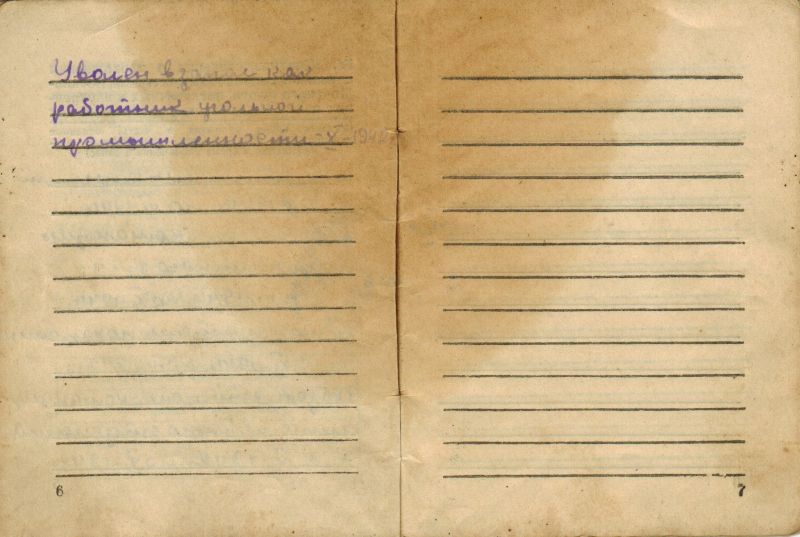 Уволен в запас как
работник угольной
промышленности X-1945
6
7